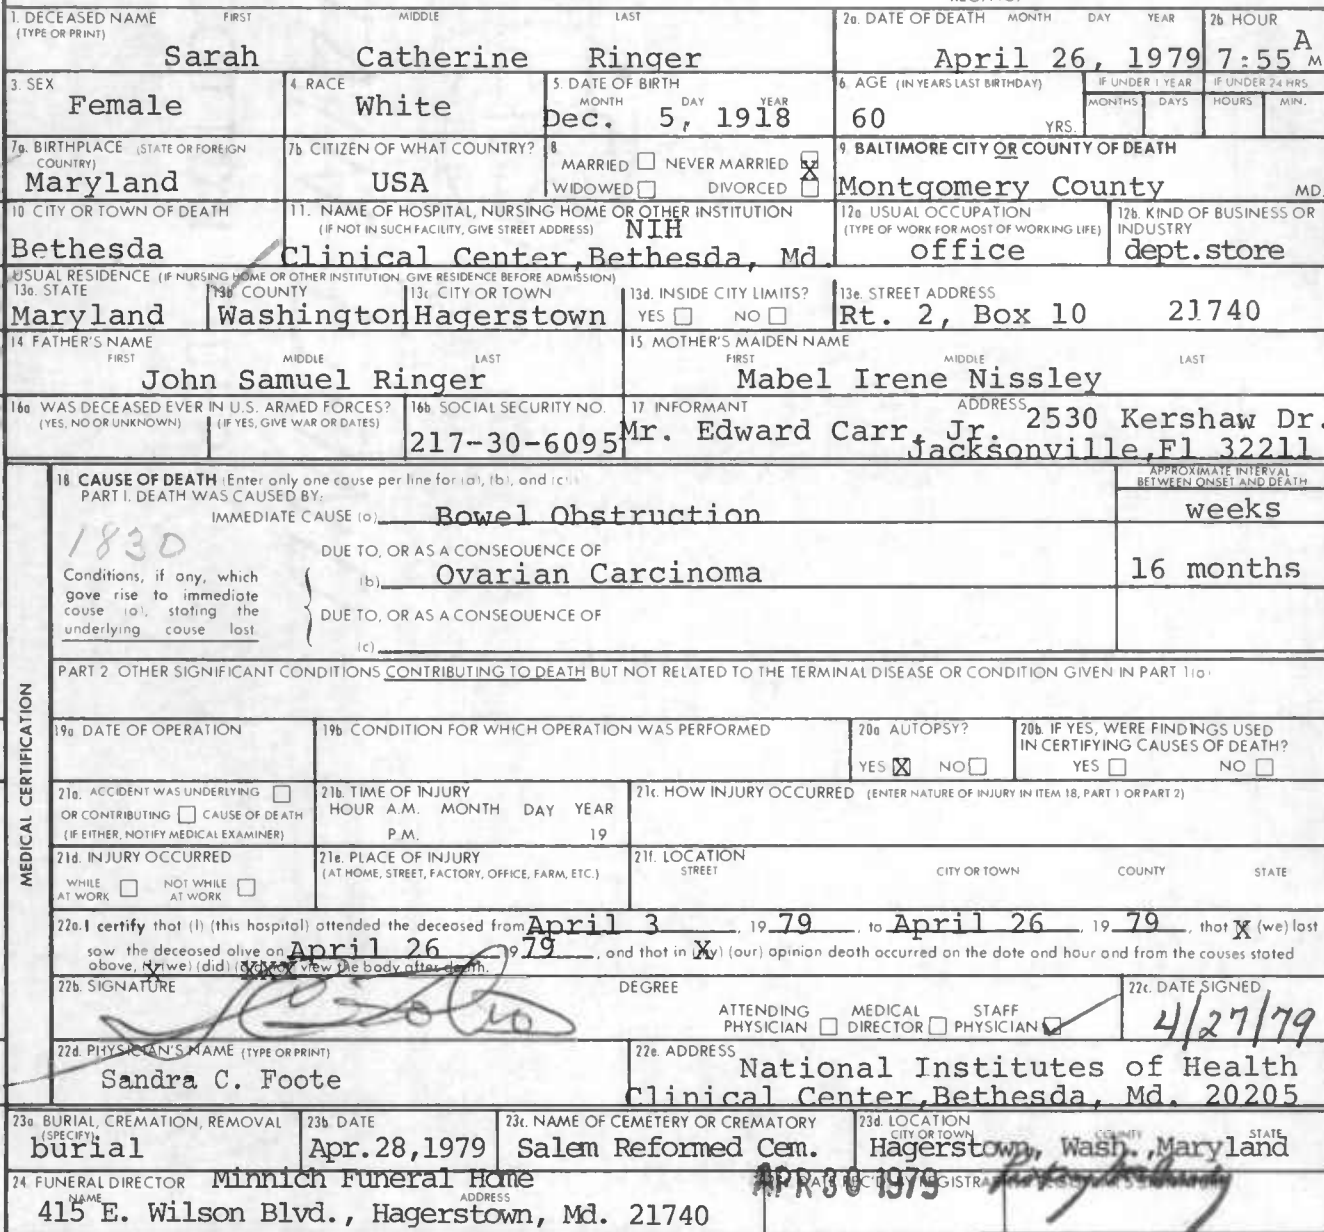 1. DECEASED NAME FIRST MIDDLE LAST
(TYPE OR PRINT)
Sarah Catherine Ringer
2a. DATE OF DEATH MONTH DAY YEAR
April 26, 1979
2b HOUR
7:55 A M
3. SEX
Female
4 RACE
White
5. DATE OF BIRTH
MONTH DAY YEAR
Dec. 5, 1918
6. AGE (IN YEARS LAST BIRTHDAY)
60 YRS.
IF UNDER 1 YEAR
MONTHS DAYS
IF UNDER 24 HRS
HOURS MIN.
7a. BIRTHPLACE (STATE OR FOREIGN
COUNTRY)
Maryland
7b CITIZEN OF WHAT COUNTRY?
USA
8
MARRIED ☐ NEVER MARRIED ☒
WIDOWED ☐ DIVORCED ☐
9. BALTIMORE CITY OR COUNTY OF DEATH
Montgomery County MD.
10 CITY OR TOWN OF DEATH
Bethesda
11. NAME OF HOSPITAL, NURSING HOME OR OTHER INSTITUTION
(IF NOT IN SUCH FACILITY, GIVE STREET ADDRESS) NIH
Clinical Center, Bethesda, Md.
12a USUAL OCCUPATION
(TYPE OF WORK FOR MOST OF WORKING LIFE)
office
12b. KIND OF BUSINESS OR
INDUSTRY
dept.store
USUAL RESIDENCE (IF NURSING HOME OR OTHER INSTITUTION GIVE RESIDENCE BEFORE ADMISSION)
13a. STATE
Maryland
13b COUNTY
Washington
13c CITY OR TOWN
Hagerstown
13d. INSIDE CITY LIMITS?
YES ☐ NO ☐
13e. STREET ADDRESS
Rt. 2, Box 10 21740
14 FATHER'S NAME
FIRST MIDDLE LAST
John Samuel Ringer
15 MOTHER'S MAIDEN NAME
FIRST MIDDLE LAST
Mabel Irene Nissley
16a WAS DECEASED EVER IN U.S. ARMED FORCES?
(YES, NO OR UNKNOWN) (IF YES, GIVE WAR OR DATES)
16b. SOCIAL SECURITY NO.
217-30-6095
17 INFORMANT ADDRESS
Mr. Edward Carr, Jr. 2530 Kershaw Dr.
Jacksonville, Fl 32211
MEDICAL CERTIFICATION
18 CAUSE OF DEATH (Enter only one cause per line for (a), (b), and (c).)
PART I. DEATH WAS CAUSED BY:
APPROXIMATE INTERVAL
BETWEEN ONSET AND DEATH
IMMEDIATE CAUSE (a) Bowel Obstruction weeks
1830
DUE TO, OR AS A CONSEQUENCE OF
(b) Ovarian Carcinoma 16 months
Conditions, if any, which
gave rise to immediate
cause (a), stating the
underlying cause last
DUE TO, OR AS A CONSEQUENCE OF
(c)
PART 2 OTHER SIGNIFICANT CONDITIONS CONTRIBUTING TO DEATH BUT NOT RELATED TO THE TERMINAL DISEASE OR CONDITION GIVEN IN PART 1(a)
19a DATE OF OPERATION
19b CONDITION FOR WHICH OPERATION WAS PERFORMED
20a AUTOPSY?
YES ☒ NO ☐
20b. IF YES, WERE FINDINGS USED
IN CERTIFYING CAUSES OF DEATH?
YES ☐ NO ☐
21a. ACCIDENT WAS UNDERLYING ☐
OR CONTRIBUTING ☐ CAUSE OF DEATH
(IF EITHER, NOTIFY MEDICAL EXAMINER)
21b. TIME OF INJURY
HOUR A.M. MONTH DAY YEAR
P.M. 19
21c. HOW INJURY OCCURRED (ENTER NATURE OF INJURY IN ITEM 18, PART 1 OR PART 2)
21d. INJURY OCCURRED
WHILE AT WORK ☐ NOT WHILE AT WORK ☐
21e. PLACE OF INJURY
(AT HOME, STREET, FACTORY, OFFICE, FARM, ETC.)
21f. LOCATION
STREET CITY OR TOWN COUNTY STATE
22a. I certify that (I) (this hospital) attended the deceased from April 3, 1979, to April 26, 1979, that X (we) last
saw the deceased alive on April 26 1979, and that in X (our) opinion death occurred on the date and hour and from the causes stated
above, X (we) (did) XXX view the body after death.
22b. SIGNATURE
DEGREE
ATTENDING PHYSICIAN ☐ MEDICAL DIRECTOR ☐ STAFF PHYSICIAN ☑
22c. DATE SIGNED
4/27/79
22d. PHYSICIAN'S NAME (TYPE OR PRINT)
Sandra C. Foote
22e. ADDRESS
National Institutes of Health
Clinical Center, Bethesda, Md. 20205
23a BURIAL, CREMATION, REMOVAL
(SPECIFY)
burial
23b DATE
Apr.28,1979
23c. NAME OF CEMETERY OR CREMATORY
Salem Reformed Cem.
23d. LOCATION
CITY OR TOWN COUNTY STATE
Hagerstown, Wash., Maryland
24 FUNERAL DIRECTOR Minnich Funeral Home
NAME ADDRESS
415 E. Wilson Blvd., Hagerstown, Md. 21740
APR 30 1979